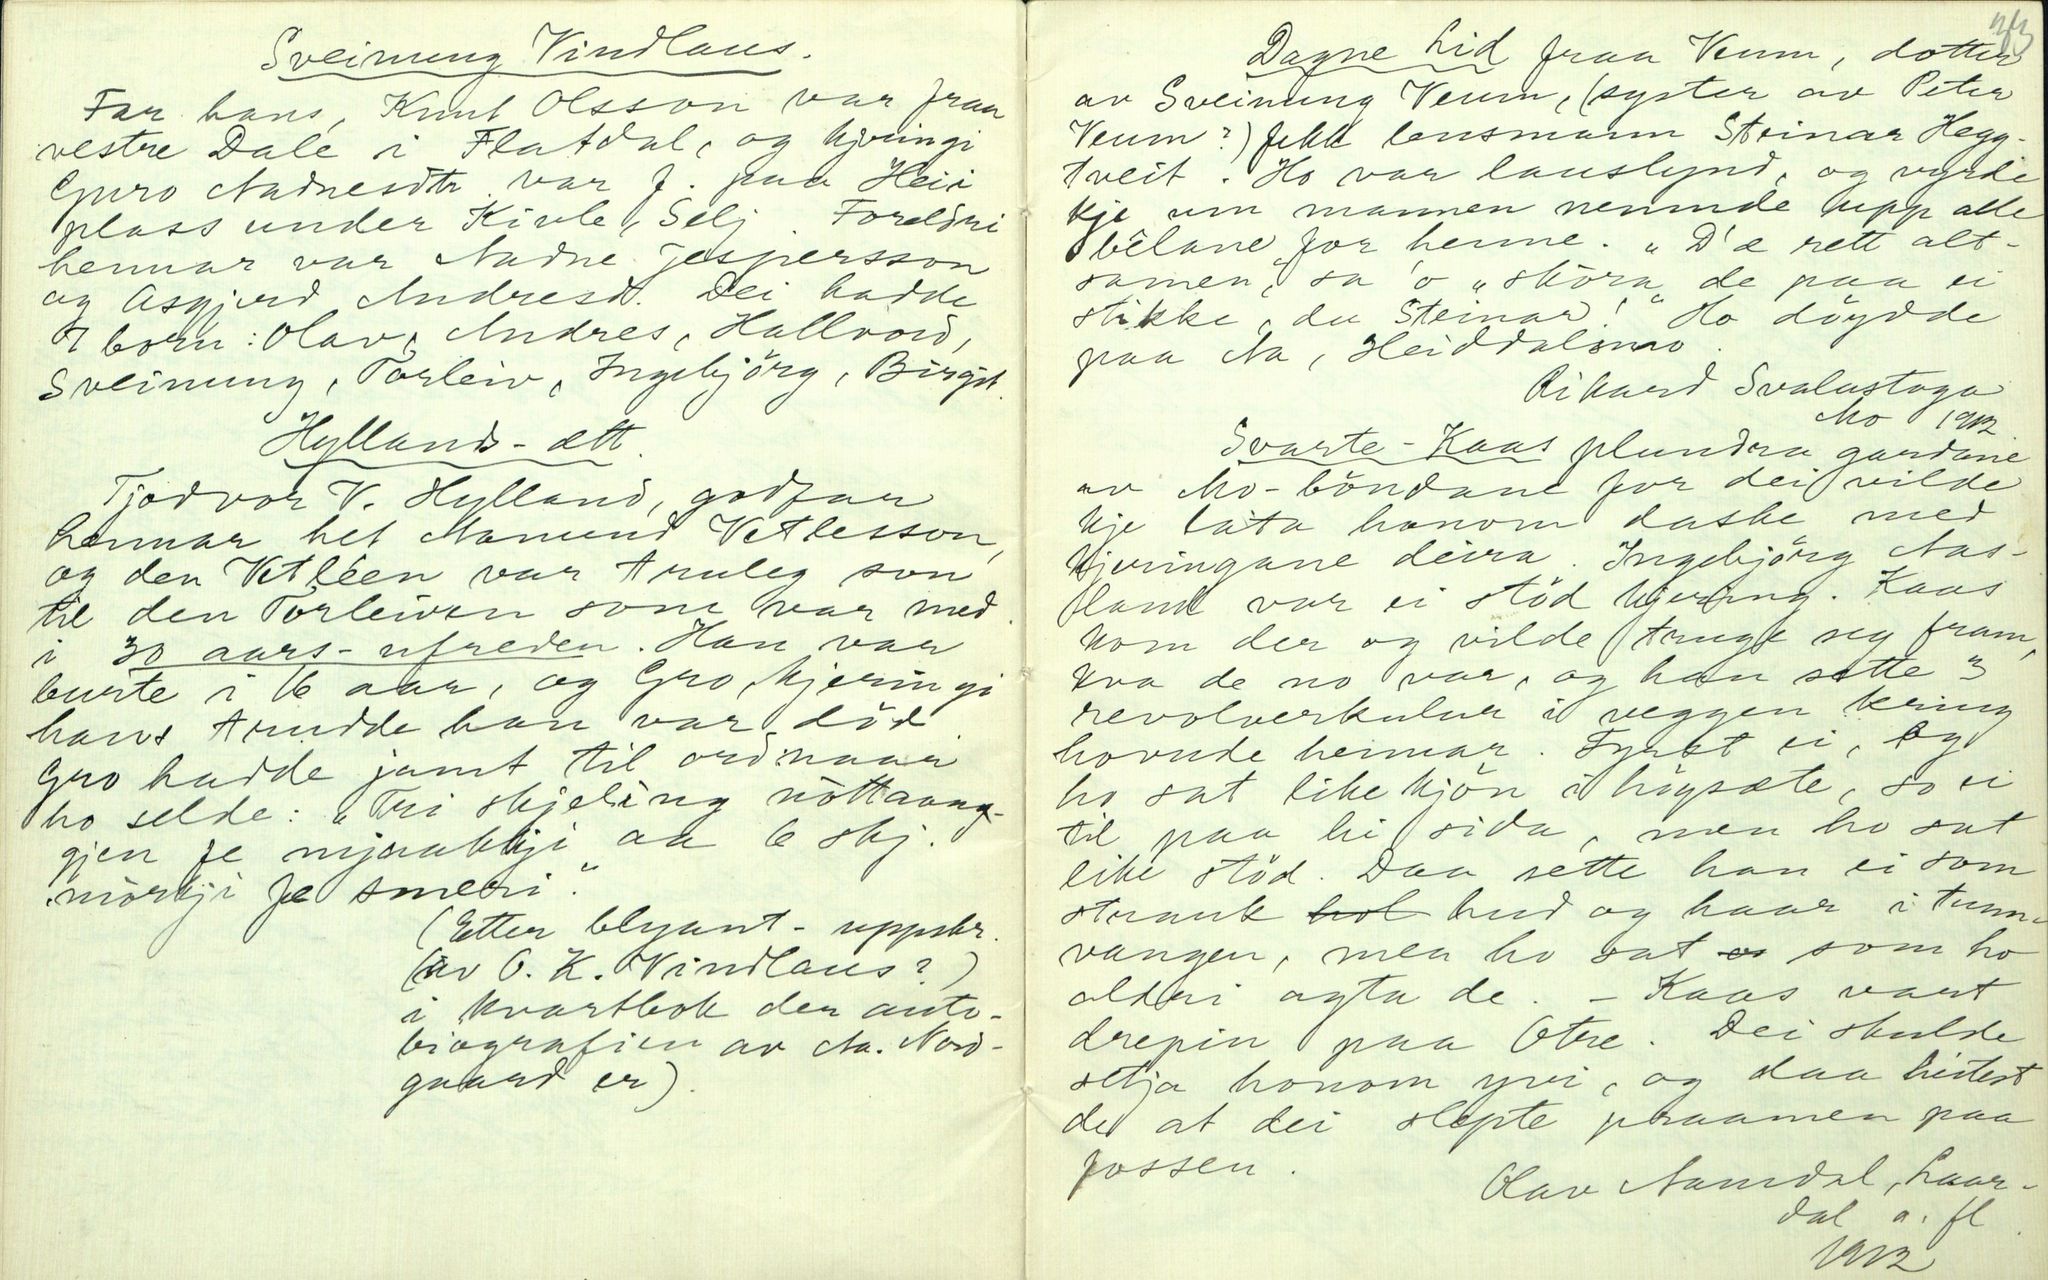 Sveinung Vindlaus.
Far hans, Knut Olsson var fraa
vestre Dale i Flatdal, og kjeringi
Guro Aadnesdtr. var f. paa Heii
plass under Kivle, Selj. Foreldri
hennar var Aadne Jespersson
og Asgjerd Andresd. Dei hadde
7 born: Olav, Andres, Hallvord,
Sveinung, Torleiv, Ingebjörg, Birgit.
Hyllands-ætt.
Tjodvor V. Hylland, godfar
hennar het Aamund Vetlesson,
og den Vetleen var truleg son
til den Torleiven som var med
i 30 aars-ufreden. Han var
burte i 6 aar, og Gro, kjeringi
hans trudde han var död.
Gro hadde jamt til ord naar
ho selde: "Tri skjeling nöttaang-
gjen fe mjaakkji aa 6 skj.
mörkji fe smeri."
(Etter blyant-uppskr.
(av O. K. Vindlaus?)
i kvartbok der auto-
biografien av Aa. Nord-
gaard er).
Dagne Lid fraa Veum, dotter
av Sveinung Veum, (syster av Peter
Veum?) fekk lensmann Steinar Hegg-
tveit. Ho var lauslynd, og vyrde
kje um mannen nemnde upp alle
bêlane for henne. "D'æ rett alt-
samen," sa 'o "skora de paa ei
stikke, du Steinar!" Ho döydde
paa Aa, Heiddalsmo.
Rikard Svalastoga
Mo 1912
Svarte-Kaas plundra gardane
av Mo-böndane for dei vilde
kje lata honom daske med
kjeringane deira. Ingebjörg Aas-
land var ei stöd kjering. Kaas
kom der og vilde truge seg fram,
kva de no var, og han sette 3
revolverkulur i veggen kring
hovude hennar. Fyrst ei, og
ho sat like kjön i högsæte, so ei
til paa hi sida, men ho sat
like stöd. Daa sette han ei som
strauk hol hud og haar i tunn-
vangen, men ho sat som ho
aldri agta de. – Kaas vart
drepin paa Otre. Dei skulde
setja honom yvi, og daa heitest
de at dei slepte praamen paa
fossen.
Olav Aamdal, Laar-
dal o. fl.
1912